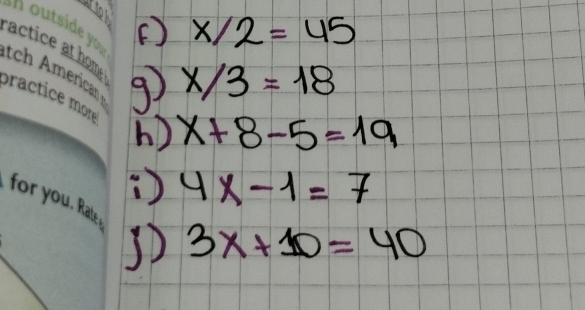 sh outside your
ractice at home
atch American
practice more!
for you. Rate
f) x/2 = 45
g) x/3 = 18
h) x+8-5=19
i) 4x-1 = 7
j) 3x+10 = 40